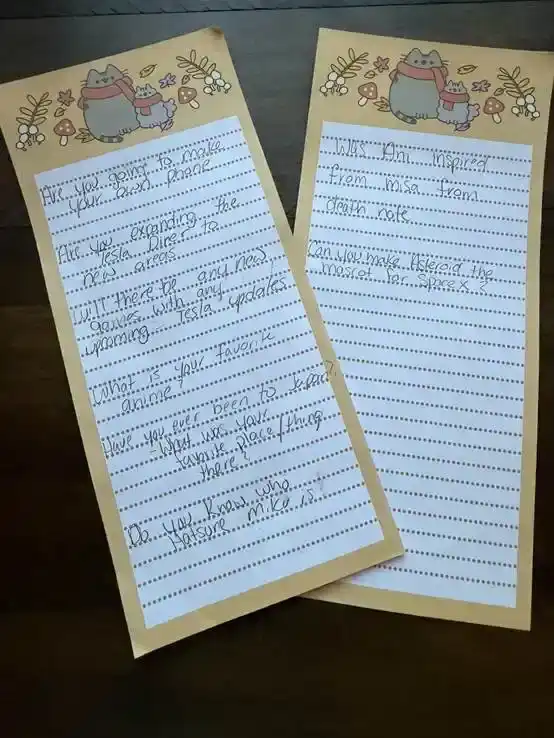 Are you going to make
your own phone
Are you expanding the
Tesla Diner to
new areas
Will there be any new
games with any
upmming Tesla updates
What is your favorite
anime
Have you ever been to Japan?
- What was your
favorite place/thing
there?
Do you know who
Hatsune miku is?
Was Ani inspired
from misa from
death note
Can you make Asteroid the
mascot for SpaceX?